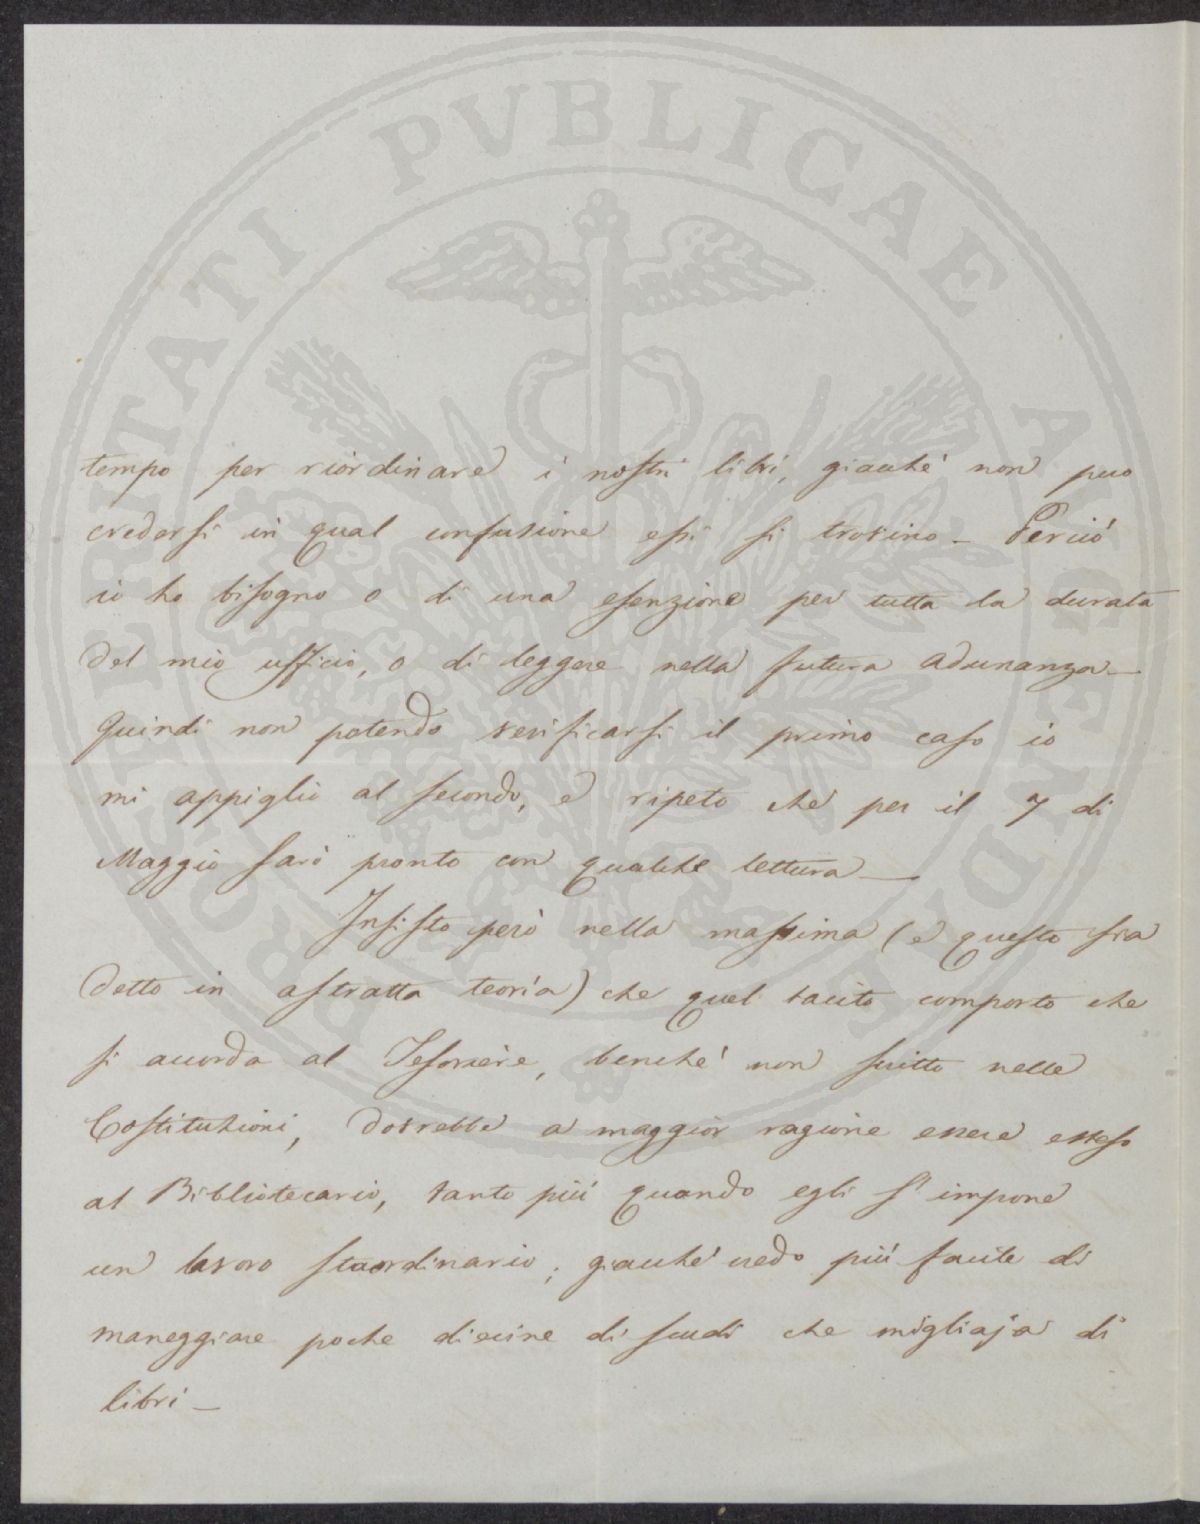 PROSPERITATI PVBLICAE AVGENDAE
tempo per riordinare i nostri libri, giacché non puo
credersi in qual confusione essi si trovino - Perciò
io ho bisogno o di una esenzione per tutta la durata
del mio ufficio, o di leggere nella futura adunanza -
Quindi non potendo verificarsi il primo caso io
mi appiglio al secondo, e ripeto che per il 7 di
Maggio sarò pronto con qualche lettura -
Insisto però nella massima (e questo sia
detto in astratta teoria) che quel tacito comporto che
si accorda al Tesoriere, benché non scritto nelle
Costituzioni, dovrebbe a maggior ragione essere esteso
al Bibliotecario, tanto più quando egli s'impone
un lavoro staordinario; giacché credo più facile di
maneggiare poche diecine di scudi che migliaja di
libri -